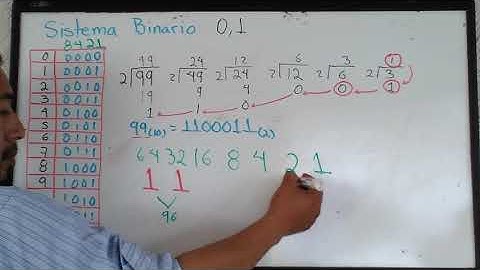 Sistema Binario 0,1
8421
0 0000
1 0001
2 0010
3 0011
4 0100
5 0101
6 0110
7 0111
8 1000
9 1001
1010
49 24 12 6 3 1
2 99 2 49 2 24 2 12 2 6 2 3
19 9 4 0 0 1
1 1 0
99(10) = 1100011(2)
64 32 16 8 4 2 1
1 1
96